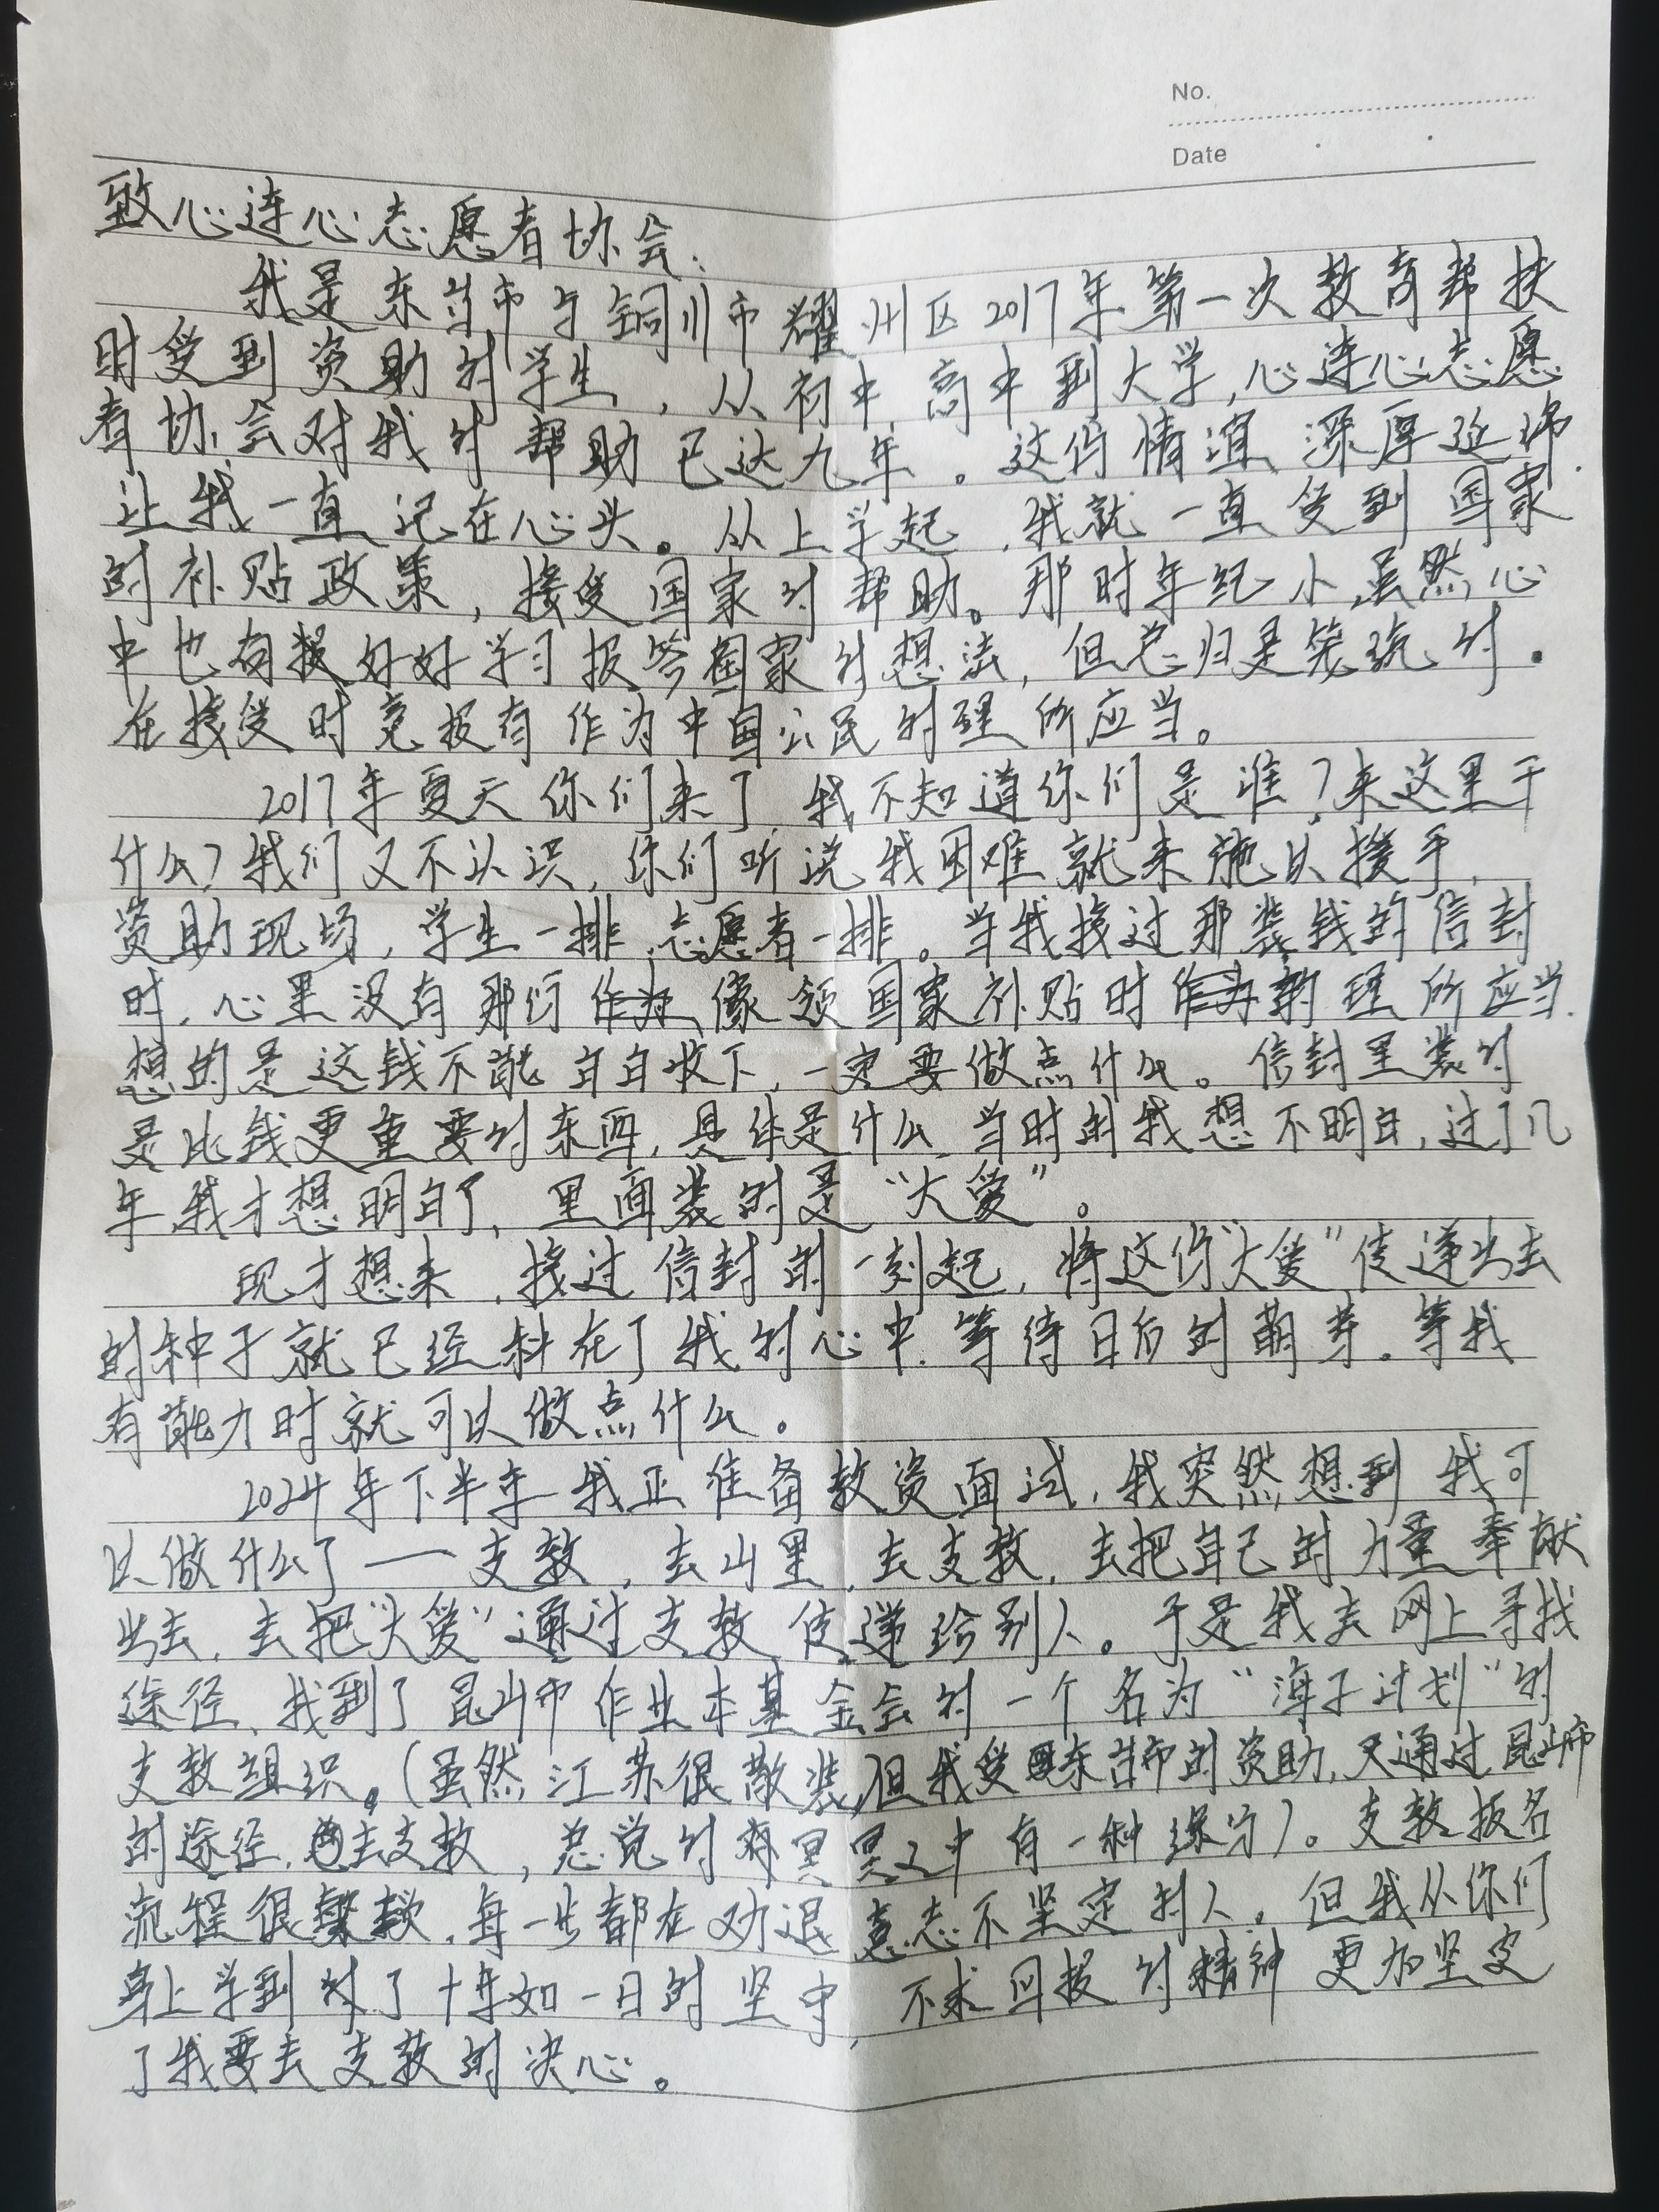 No.
Date
致心连心志愿者协会:
我是东台市与铜川市耀州区2017年第一次教育帮扶
时受到资助的学生,从初中高中到大学,心连心志愿
者协会对我的帮助已达九年。这份情谊深厚延绵,
让我一直记在心头。从上学起,我就一直受到国家
的补贴政策,接受国家的帮助。那时年纪小,虽然心
中也有好好学习报答国家的想法,但总归是笼统的。
在接受时竟报有作为中国公民的理所应当。
2017年夏天你们来了,我不知道你们是谁?来这里干
什么?我们又不认识,你们听说我困难就来施以援手,
资助现场,学生一排,志愿者一排。当我接过那装钱的信封
时,心里没有那份像领国家补贴时的理所应当.
想的是这钱不能白白收下,一定要做点什么。信封里装的
是比钱更重要的东西,具体是什么,当时的我想不明白,过了几
年,我才想明白了,里面装的是“大爱”。
现才想来,接过信封的一刻起,将这份“大爱”传递出去
的种子就已经种在了我的心中,等待日后的萌芽。等我
有能力时就可以做点什么。
2024年下半年我正准备教资面试,我突然想到我可
以做什么了——支教,去山里,去支教,去把自己的力量奉献
出去,去把“大爱”通过支教传递给别人。于是我去网上寻找
途径,找到了昆山市作业本基金会的一个名为“海子计划”的
支教组织。(虽然江苏很散装,但我受东台市的资助,又通过昆山市
的途径,去支教,总觉的冥冥之中有一种缘分)。支教报名
流程很繁,每一步都在劝退意志不坚定的人。但我从你们
身上学到了十年如一日的坚守,不求回报的精神更加坚定
了我要去支教的决心。